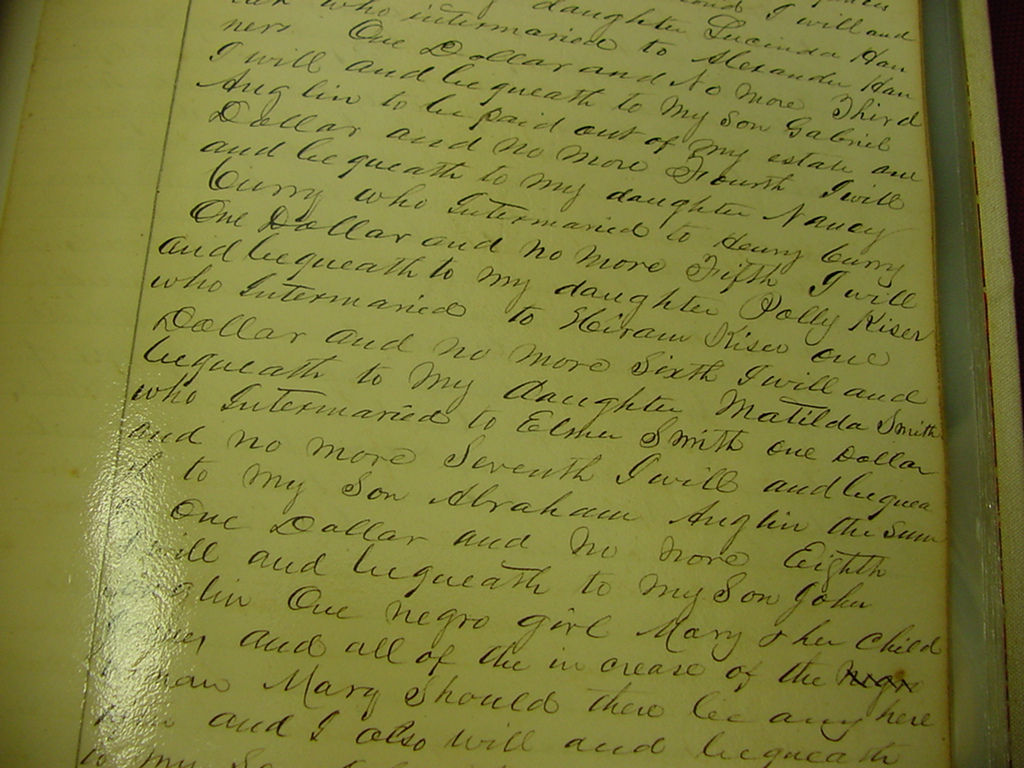 I will and
who intermaried to daughter Lucinda Han
ners One Dollar and No more Third
I will and bequeath to my Son Gabriel
Anglin to be paid out of my estate one
Dollar and no more Fourth I will
and bequeath to my daughter Nancy
Curry who Intermaried to Henry Curry
One Dollar and no more Fifth I will
and bequeath to my daughter Polly Kiser
who Intermaried to Hiram Kiser one
Dollar and no more Sixth I will and
bequeath to My Daughter Matilda Smith
who Intermaried to Elmer Smith one Dollar
and no more Seventh I will and bequea
th to my Son Abraham Anglin the Sum
One Dollar and no more Eighth
will and bequeath to my Son John
One negro girl Mary & her child
and all of the in crease of the negro
Mary Should there be any here
and I also will and bequeath
to my